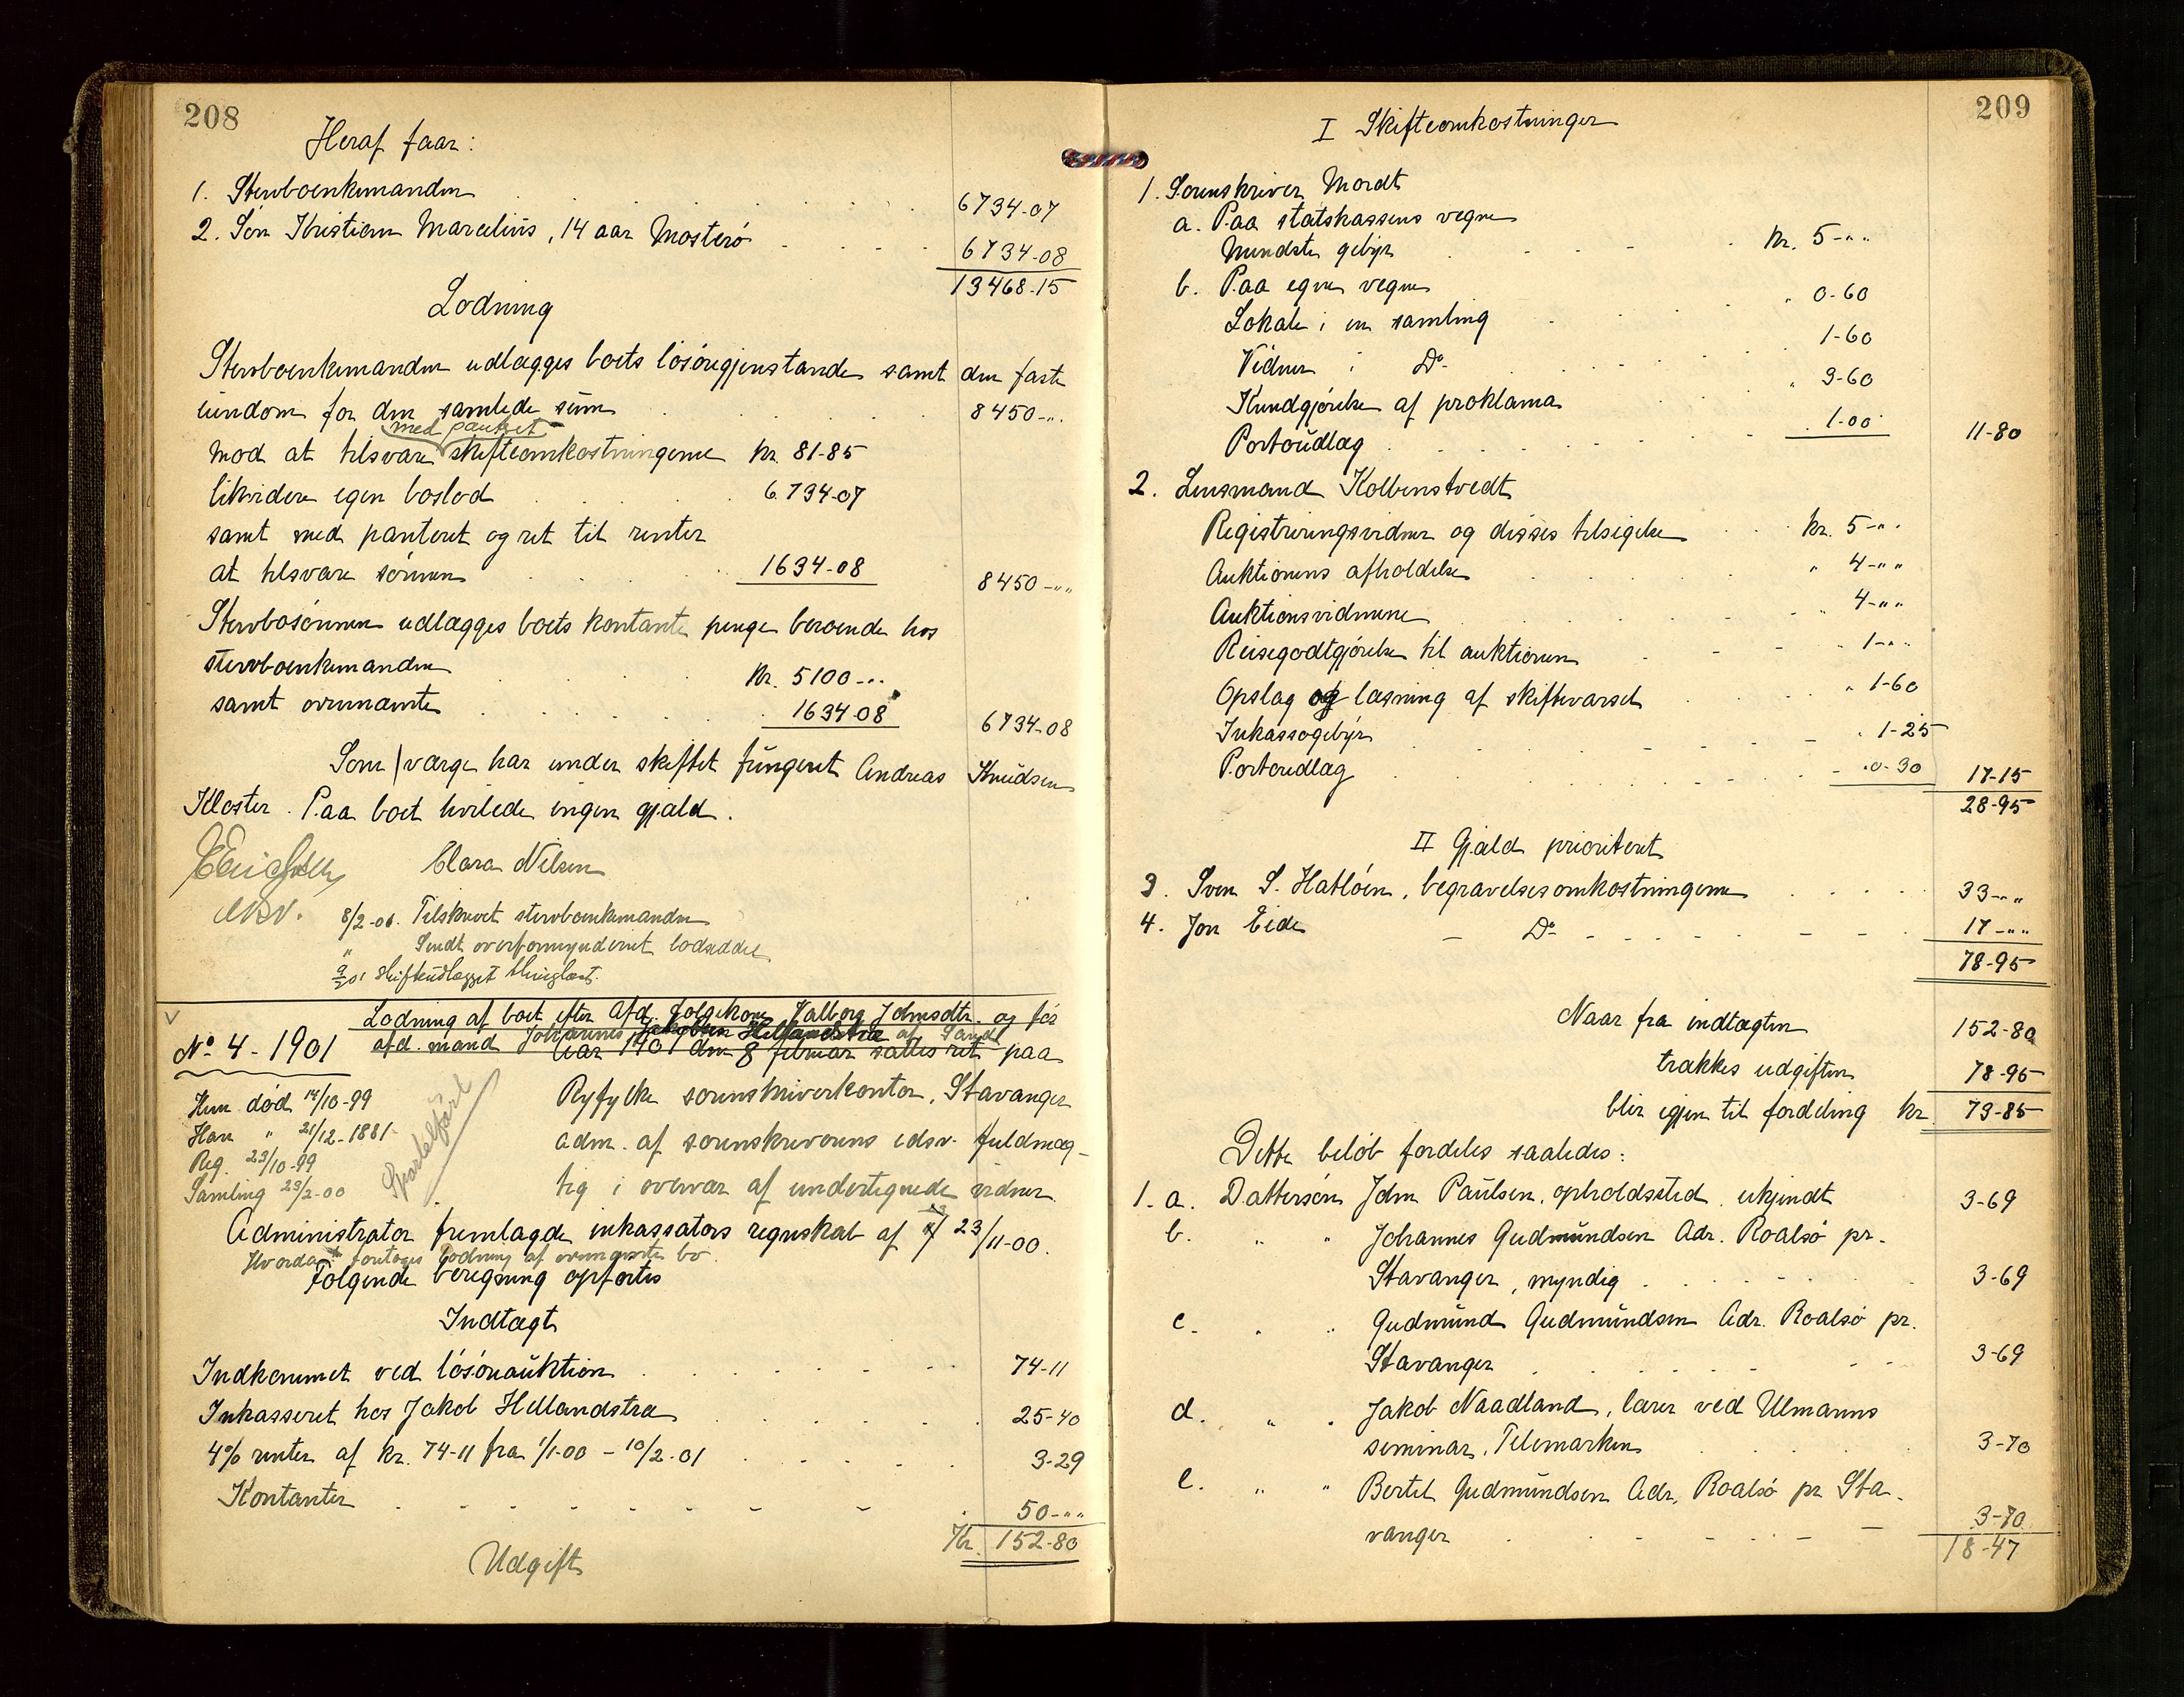 208
Heraf faar:
1. Stervboenkemanden . . . . . 6734-07
2. Søn Kristian Marcelius, 14 aar Mosterø . . . . 6734-08
13468-15
Lodning
Stervboenkemanden udlægges boets løsøregjenstande samt den faste
eiendom for den samlede sum . . . . 8450-"
med pantret
mod at tilsvare skifteomkostningerne kr. 81-85
likvidere egen boslod . . . . 6734-07
samt med panteret og ret til renter
at tilsvare sønnen . . . . 1634-08 8450-""
Stervbosønnen udlægges boets kontante penge beroende hos
stervboenkemanden . . . . kr. 5100-"
samt ovennævnte . . . . 1634-08 6734-08
Som værge har under skiftet fungeret Andreas Knudsen
Kloster. Paa boet hvilede ingen gjæld.
Clara Nilsen
edsv.
8/2-01. Tilskrevet stervboenkemanden
" Sendt overformynderiet lodseddel
9/2 01 skifteudlægget thinglæst.
Lodning af boet efter Afd. folgekone Valborg Johnsdtr. og før
afd. mand Johannes Jakobsen Hellandstræ af Sand
No 4-1901 Aar 1901 den 8 februar sattes ret paa
Hun død 14/10-99 Ryfylke sorenskriverkontor, Stavanger
Han " 21/12-1881 adm. af sorenskriverens edsv. fuldmæg-
Reg. 23/10-99
Samling 23/2-00 tig i overvær af undertegnede vidner
Administrator fremlagde inkassators regnskab af 23/11-00.
Hvorda foretoges lodning af ovennævnte bo
Følgende beregning opførtes
Indtægt
Indkommet ved løsøreauktion . . . . 74-11
Inkasseret hos Jakob Hellandstræ . . . . 25-40
4% renter af kr. 74-11 fra 1/1-00 - 10/2-01 . . . . 3-29
Kontanter - - - - - 50-""
Kr. 152-80
Udgift
209
I Skifteomkostninger
1. Sorenskriver Mordt
a. Paa statskassens vegne
Mindste gebyr . . . . kr. 5-""
b. Paa egne vegne
Lokale i en samling . . . . " 0-60
Vidner i Do . . . . 1-60
Kundgjørelse af proklama " 3-60
Portoudlæg . . . . 1-00 11-80
2. Lensmand Kolbenstvedt
Registreringsvidner og disses tilsigelse . . . kr. 5-".
Auktionens afholdelse . . . . " 4-""
Auktionsvidnerne . . . . " 4-""
Reisegodtgjørelse til auktionen - - - " 1-""
Opslag og læsning af skiftevarsel . . . . " 1-60
Inkassogebyr . . . . " 1-25
Portoudlæg . . . . 0-30 17-15
28-95
II Gjæld prioriteret
3. Sven S. Hatløen, begravelsesomkostningerne . . . . 33-""
4. Jon Eide - Do - - - - 17-""
78-95
Naar fra indtægten 152-80
trækkes udgiften 78-95
blir igjen til fordeling kr. 73-85
Dette beløb fordeles saaledes:
1. a. Dattersøn John Paulsen, opholdssted ukjendt 3-69
b. " " Johannes Gudmundsen Adr. Roalsø pr.
Stavanger, myndig . . . . 3-69
c. " " Gudmund Gudmundsen Adr. Roalsø pr.
Stavanger . . . . 3-69
d. " " Jakob Naadland, lærer ved Ulmanns
seminar, Telemarken . . . . 3-70
e. " " Bertel Gudmundsen Adr. Roalsø pr Sta-
vanger . . . . 3-70
18-47